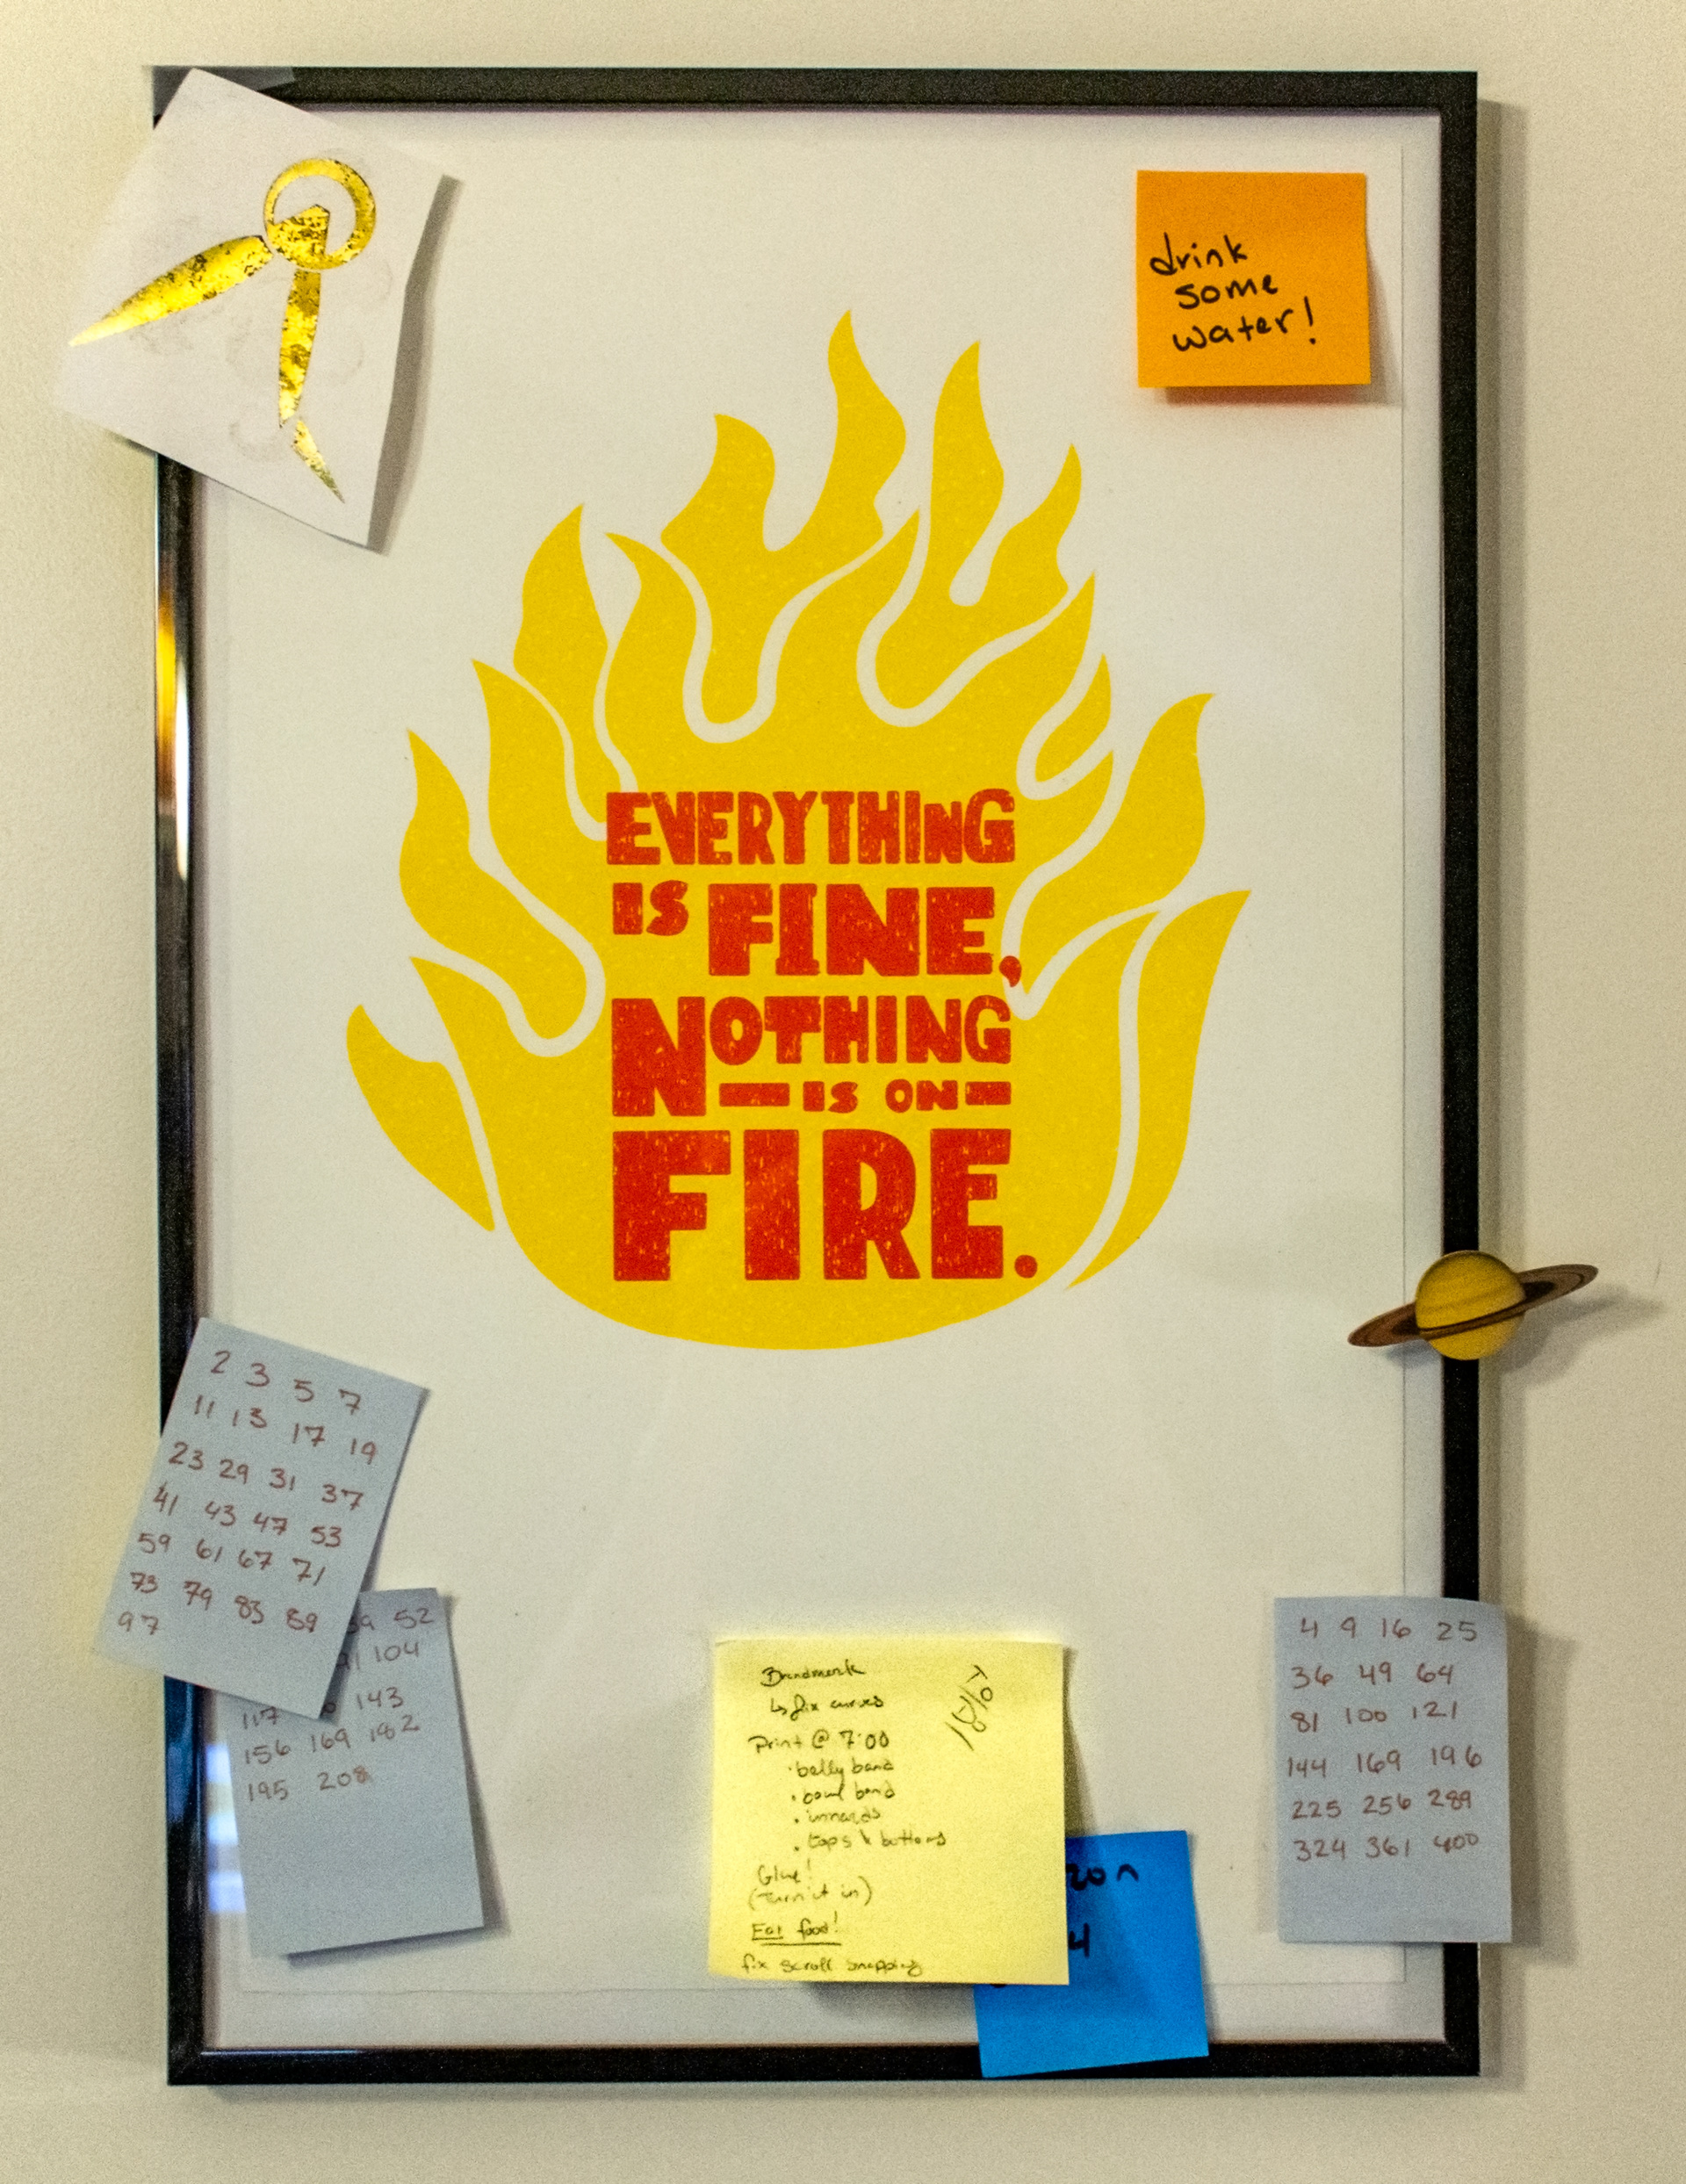 drink
some
water!
EVERYTHING
IS FINE,
NOTHING
IS ON
FIRE.
2 3 5 7
11 13 17 19
23 29 31 37
41 43 47 53
59 61 67 71
73 79 83 89
97
52
104
117 143
156 169 182
195 208
Brandmark
↳ fix curves
Print @ 7:00
• belly band
• bowl band
• innards
• tops & bottoms
Glue!
(turn it in)
Eat food!
fix scroll snapping
4 9 16 25
36 49 64
81 100 121
144 169 196
225 256 289
324 361 400